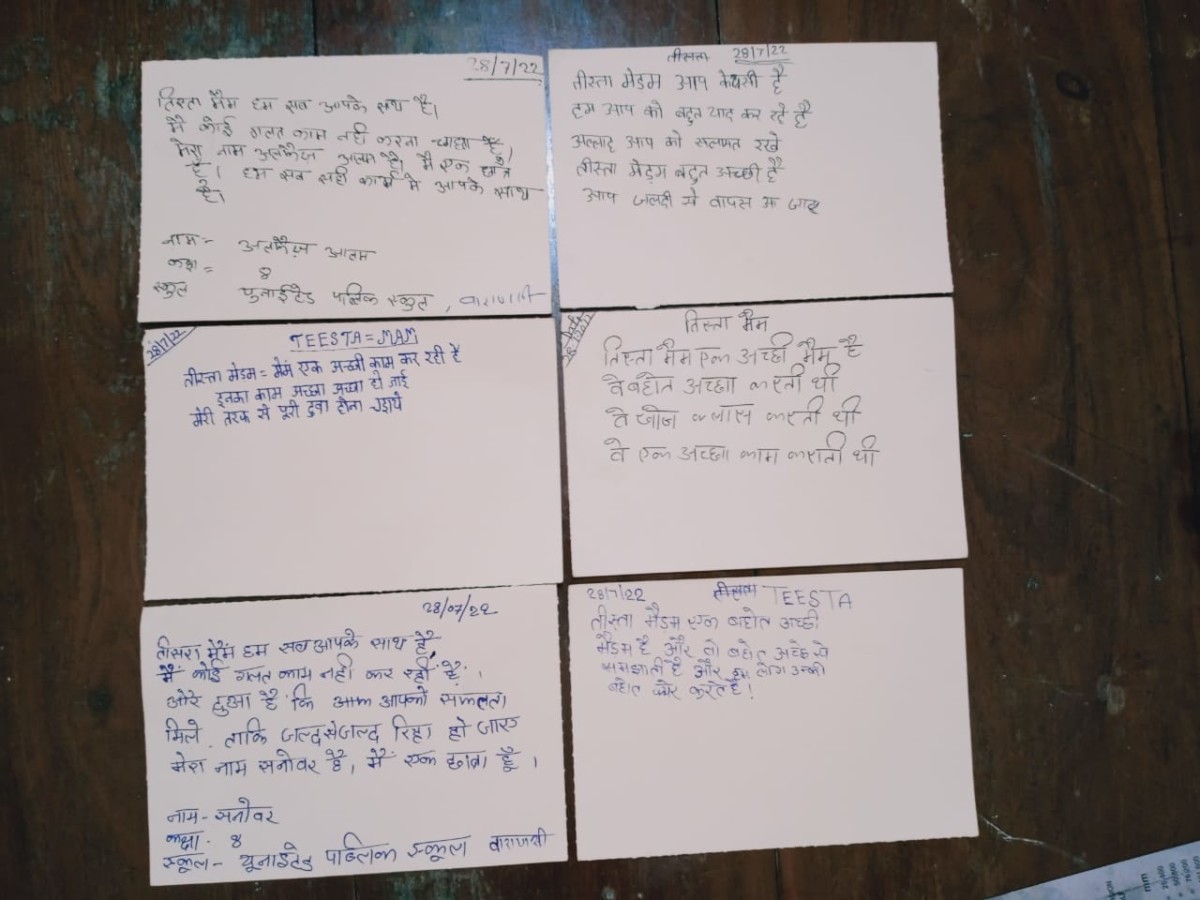 28/7/22
तिस्ता मैम हम सब आपके साथ है।
मै कोई गलत काम नही करना चाहता है।
मेरा नाम अलफैज़ आलम है। मै एक छात्र
है। हम सब सही कार्य मे आपके साथ
है।
नाम = अलफैज़ आलम
कक्षा = 8
स्कुल युनाईटेड पब्लिक स्कुल, वाराणसी
तीसता 28/7/22
तीस्ता मेडम आप केयसी है
हम आप को बहुत याद कर रहे है
अल्लाह आप को सलामत रखे
तीस्ता मेडम बहुत अच्छी है
आप जलदी से वापस आ जाए
28/7/22
TEESTA = MAM
तीस्ता मेडम = मेमं एक अच्छी काम कर रही है
इनका काम अच्छा अच्छा हो जाई
मेरी तरफ से पूरी दुवा होना
28/7/22
तिस्ता मैम
तिस्ता मैम एक अच्छी मैम है
वे बहोत अच्छा करती थी
वे क्लास करती थी
वे एक अच्छा काम कराती थी
28/07/22
तीसरा मेमं हम सब आपके साथ है,
मैं कोई गलत काम नही कर रही है।
ओरे दुआ है कि आपको सफलता
मिले. ताकि जल्द से जल्द रिहा हो जाए
मेरा नाम सनोवर है, मैं एक छात्रा हूँ।
नाम- सनोवर
कक्षा- 8
स्कूल- यूनाईटेड पब्लिक स्कूल वाराणसी
28/7/22 TEESTA
तीस्ता मैडम एक बहोत अच्छी
मैडम है और वो बहोत अच्छे से
समझाती है और हम लोग उनकी
बहोत करते है!